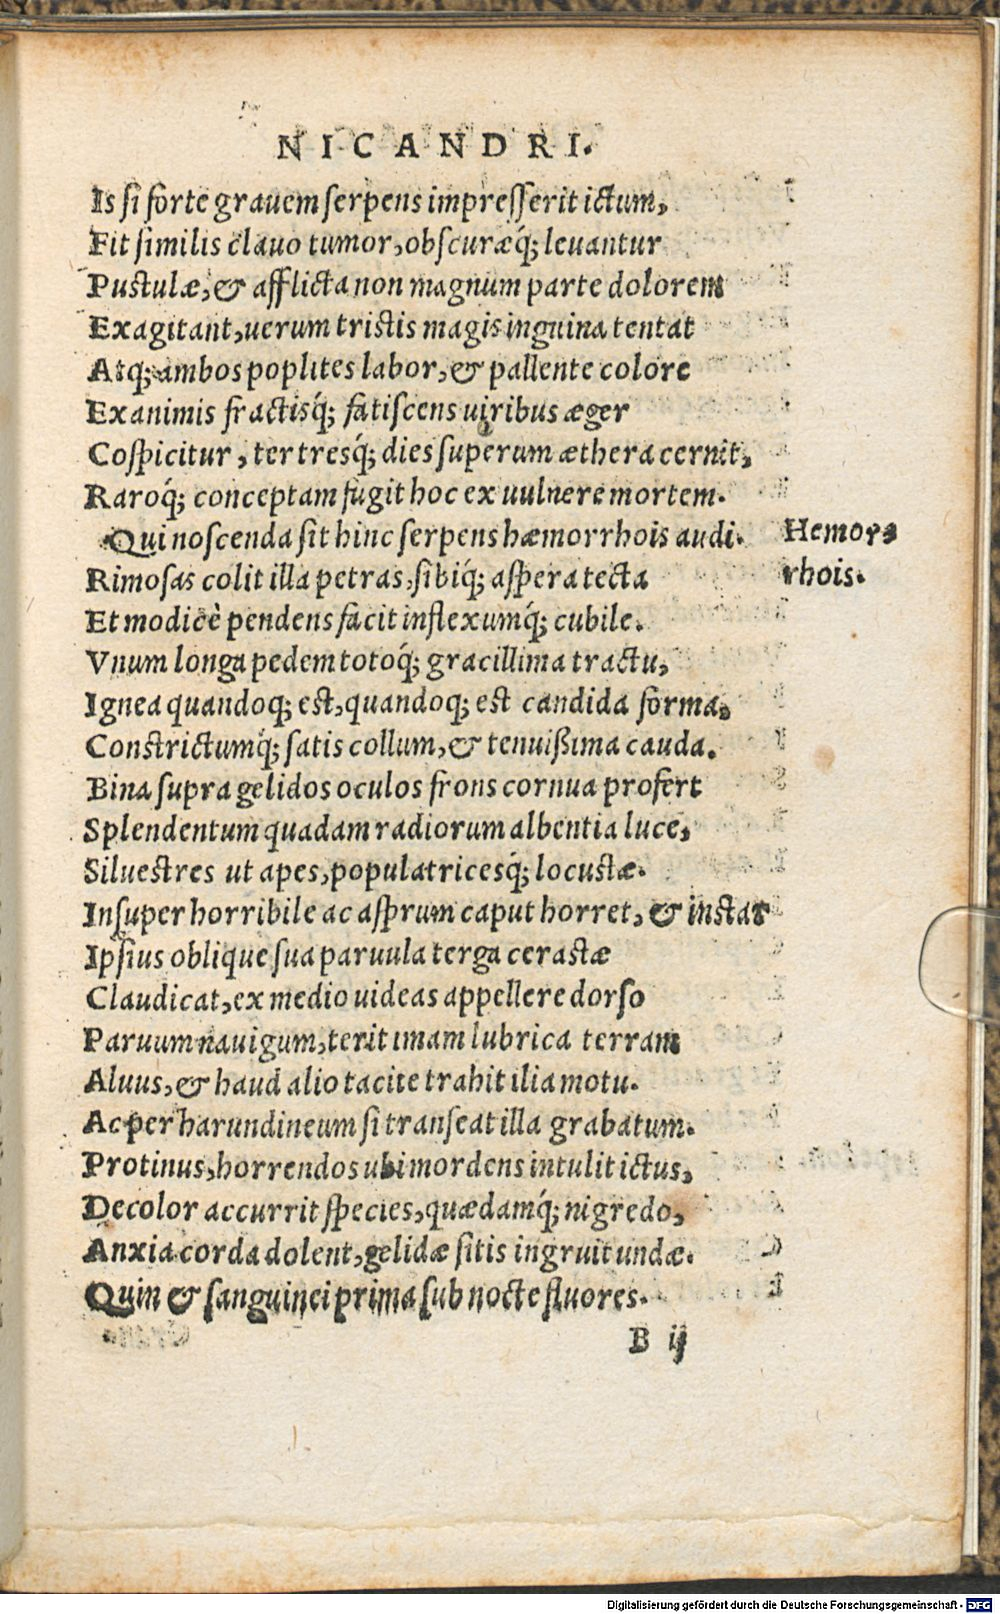 NICANDRI.
Is si forte grauem serpens impresserit ictum,
Fit similis clauo tumor, obscuræq́; leuantur
Pustulæ, & afflicta non magnum parte dolorem
Exagitant, uerum tristis magis inguina tentat
Atq; ambos poplites labor, & pallente colore
Exanimis fractisq́; fatiscens uiribus æger
Cospicitur, ter tresq́; dies superum æthera cernit,
Raroq́; conceptam fugit hoc ex uulnere mortem.
Qui noscenda sit hinc serpens hæmorrhois audi. Hemor-
Rimosas colit illa petras, sibiq́; aspera tecta rhois.
Et modicè pendens facit inflexumq́; cubile.
Vnum longa pedem totoq́; gracillima tractu,
Ignea quandoq; est, quandoq; est candida forma,
Constrictumq́; satis collum, & tenuißima cauda.
Bina supra gelidos oculos frons cornua profert
Splendentum quadam radiorum albentia luce,
Siluestres ut apes, populatricesq́; locustæ.
Insuper horribile ac asprum caput horret, & instar
Ipsius oblique sua paruula terga cerastæ
Claudicat, ex medio uideas appellere dorso
Paruum nauigum, terit imam lubrica terram
Aluus, & haud alio tacite trahit ilia motu.
Ac per harundineum si transeat illa grabatum.
Protinus, horrendos ubi mordens intulit ictus,
Decolor accurrit species, quædamq́; nigredo,
Anxia corda dolent, gelidæ sitis ingruit undæ.
Quin & sanguinei prima sub nocte fluores.
B ij
Digitalisierung gefördert durch die Deutsche Forschungsgemeinschaft - DFG